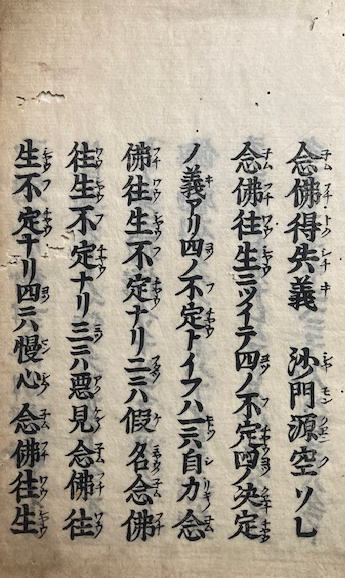 念佛得失義　沙門源空ソレ
念佛往生ニツイテ四ノ不定四ノ決定
ノ義アリ四ノ不定トイフハ一ニハ自力念
佛往生不定ナリ二ニハ假名念佛
往生不定ナリ三ニハ悪見念佛往
生不定ナリ四ニハ慢心念佛往生